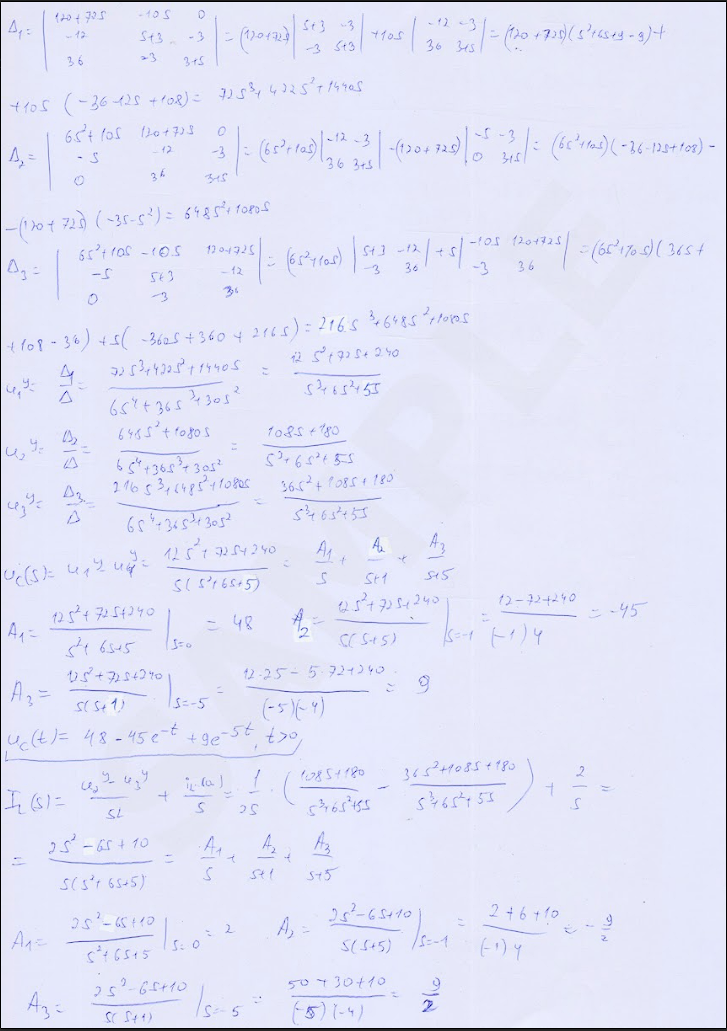 Δ₁ = | 120+72s -10s 0 ; -12 s+3 -3 ; 36 -3 3+s | = (120+72s) | s+3 -3 ; -3 s+3 | + 10s | -12 -3 ; 36 3+s | = (120+72s)(s²+6s+9-9)+
+10s (-36-12s+108) = 72s³+432s²+1440s
Δ₂ = | 6s²+10s 120+72s 0 ; -s -12 -3 ; 0 36 3+s | = (6s²+10s) | -12 -3 ; 36 3+s | - (120+72s) | -s -3 ; 0 3+s | = (6s²+10s)(-36-12s+108) -
-(120+72s)(-3s-s²) = 648s²+1080s
Δ₃ = | 6s²+10s -10s 120+72s ; -s s+3 -12 ; 0 -3 36 | = (6s²+10s) | s+3 -12 ; -3 36 | + s | -10s 120+72s ; -3 36 | = (6s²+10s)(36s+
+108-36) + s(-360s+360+216s) = 216s³+648s²+1080s
u₁ʸ = Δ₁/Δ = (72s³+432s²+1440s)/(6s⁴+36s³+30s²) = (12s²+72s+240)/(s³+6s²+5s)
u₂ʸ = Δ₂/Δ = (648s²+1080s)/(6s⁴+36s³+30s²) = (108s+180)/(s³+6s²+5s)
u₃ʸ = Δ₃/Δ = (216s³+648s²+1080s)/(6s⁴+36s³+30s²) = (36s²+108s+180)/(s³+6s²+5s)
u_c(s) = u₁ʸ - u₄ʸ = (12s²+72s+240)/(s(s²+6s+5)) = A₁/s + A₂/(s+1) + A₃/(s+5)
A₁ = (12s²+72s+240)/(s²+6s+5) |s=0 = 48 A₂ = (12s²+72s+240)/(s(s+5)) |s=-1 = (12-72+240)/((-1)4) = -45
A₃ = (12s²+72s+240)/(s(s+1)) |s=-5 = (12·25-5·72+240)/((-5)(-4)) = 9
u_c(t) = 48-45e^(-t)+9e^(-5t), t>0
I_L(s) = (u₂ʸ-u₃ʸ)/(sL) + i_L(0)/s = 1/(2s) · ((108s+180)/(s³+6s²+5s) - (36s²+108s+180)/(s³+6s²+5s)) + 2/s =
= (2s²-6s+10)/(s(s²+6s+5)) = A₁/s + A₂/(s+1) + A₃/(s+5)
A₁ = (2s²-6s+10)/(s²+6s+5) |s=0 = 2 A₂ = (2s²-6s+10)/(s(s+5)) |s=-1 = (2+6+10)/((-1)4) = -9/2
A₃ = (2s²-6s+10)/(s(s+1)) |s=-5 = (50+30+10)/((-5)(-4)) = 9/2
SAMPLE